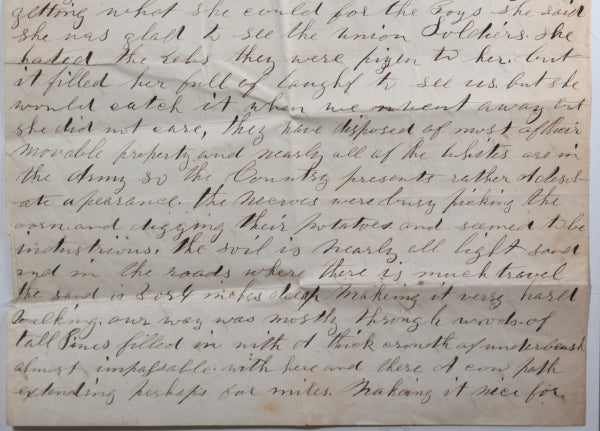 getting what she could for the Boys she said
she was glad to see the union Soldiers. she
hated the Rebs they were pizen to her. but
it filled her full of laught to see us. but she
would catch it when we went away but
she did not care, they have disposed of most of their
movable property and nearly all of the whites are in
the Army so the Country presents rather a desol-
ate apearance. the Negroes were busy picking the
corn. and digging their potatoes and seemed to be
industrious. the soil is nearly all light sand
and in the roads where there is much travel
the sand is 3 or 4 inches deep making it verry hard
walking. our way was mostly through woods of
tall Pines filled in with a thick crowth of underbrush
almost impassable. with here and there a cow path
extending perhaps for miles. making it nice for